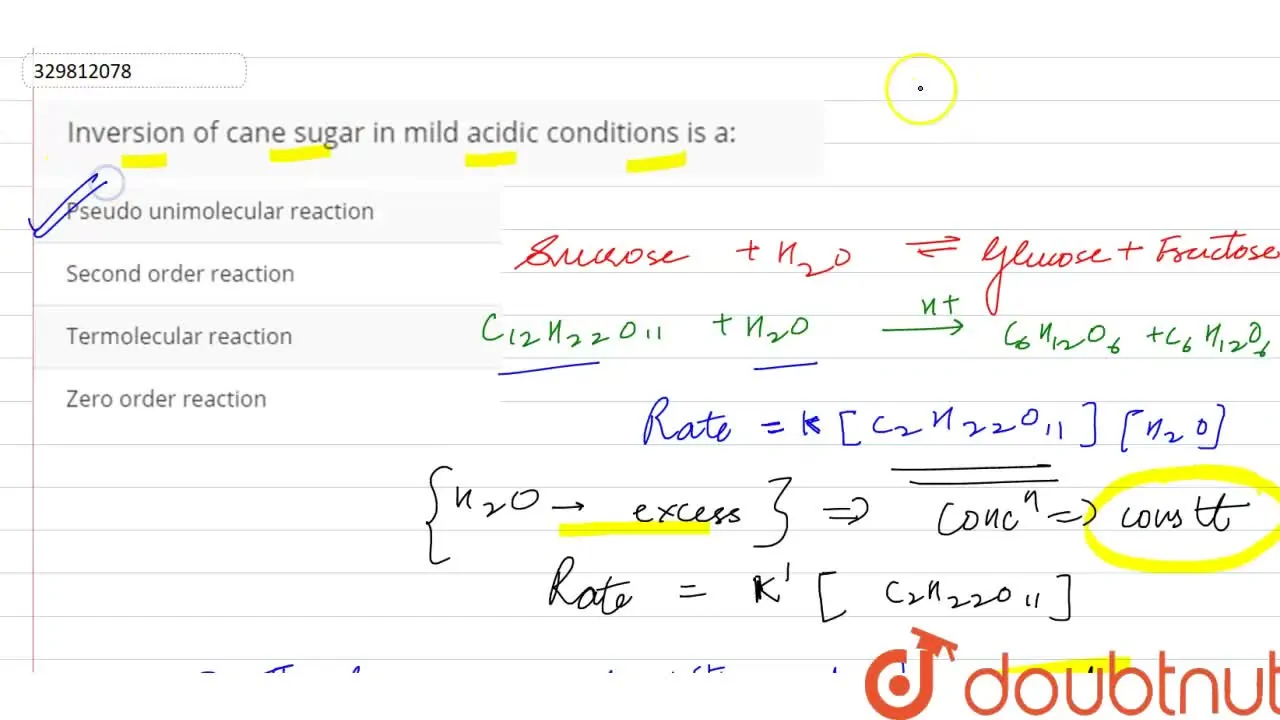 329812078
Inversion of cane sugar in mild acidic conditions is a:
Pseudo unimolecular reaction
Second order reaction
Termolecular reaction
Zero order reaction
Sucrose + H2O ⇌ Glucose + Fructose
C12H22O11 + H2O H+ → C6H12O6 + C6H12O6
Rate = K [C2H22O11] [H2O]
{H2O → excess} ⇒ Concn ⇒ constt
Rate = K' [C2H22O11]
doubtnut